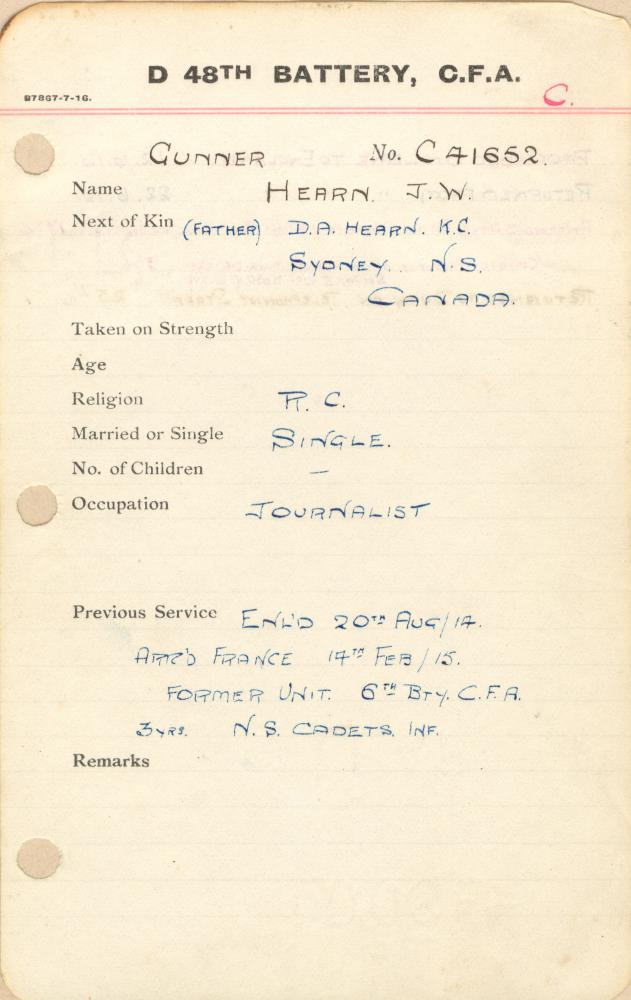 D 48TH BATTERY, C.F.A.
97867-7-16.
C.
GUNNER No. C 41652.
Name HEARN. J.W.
Next of Kin (FATHER) D.A. HEARN. K.C.
SYDNEY. N.S.
CANADA.
Taken on Strength
Age
Religion R. C.
Married or Single SINGLE.
No. of Children —
Occupation JOURNALIST
Previous Service ENL'D 20TH AUG/14.
ARR'D FRANCE 14TH FEB/15.
FORMER UNIT. 6TH BTY. C.F.A.
3 YRS. N.S. CADETS. INF.
Remarks